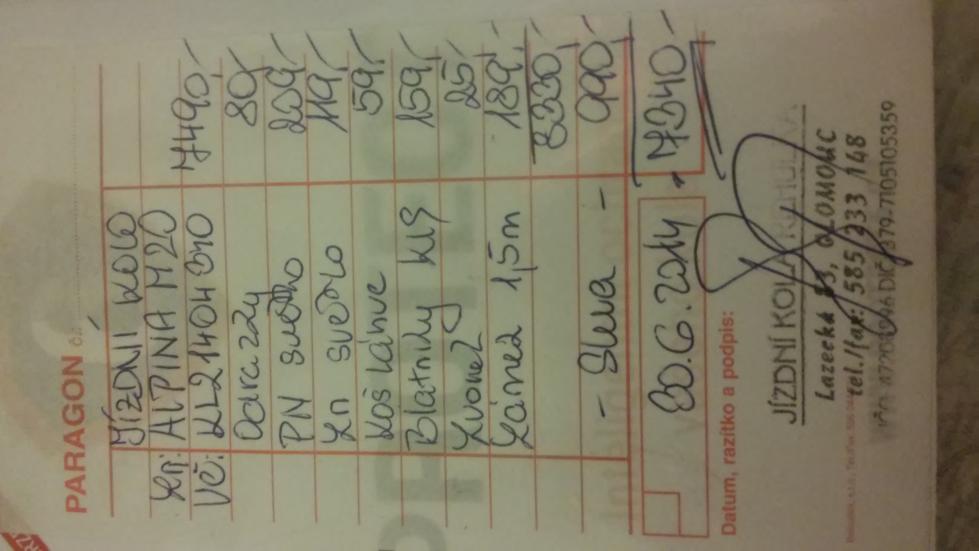 PARAGON č.:
JÍZDNÍ KOLO
ALPINA M20 7490,-
VČ: KL2140H340
Odrazky 80,-
PN světlo 209,-
Zn světlo 119,-
Koš láhve 59,-
Blatníky KLS 159,-
Zvonek 25,-
Zámek 1,5m 189,-
8330,-
- Sleva - 990,-
30.6.2014 7340,-
Datum, razítko a podpis:
JÍZDNÍ KOLA
Lazecká OLOMOUC
tel./fax: 585 233 148